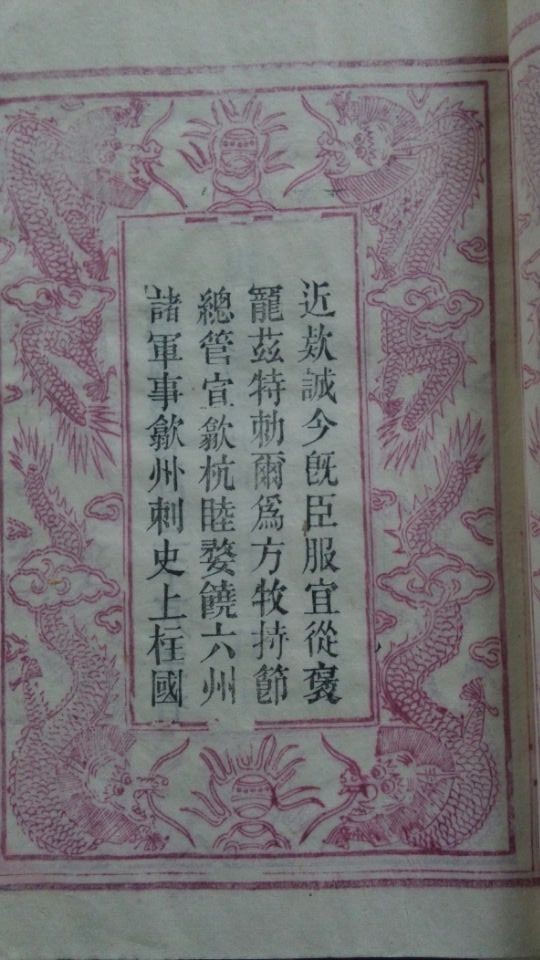 近欵誠今旣臣服宜從褒
寵茲特勅爾爲方牧持節
總管宣歙杭睦婺饒六州
諸軍事歙州刺史上柱國